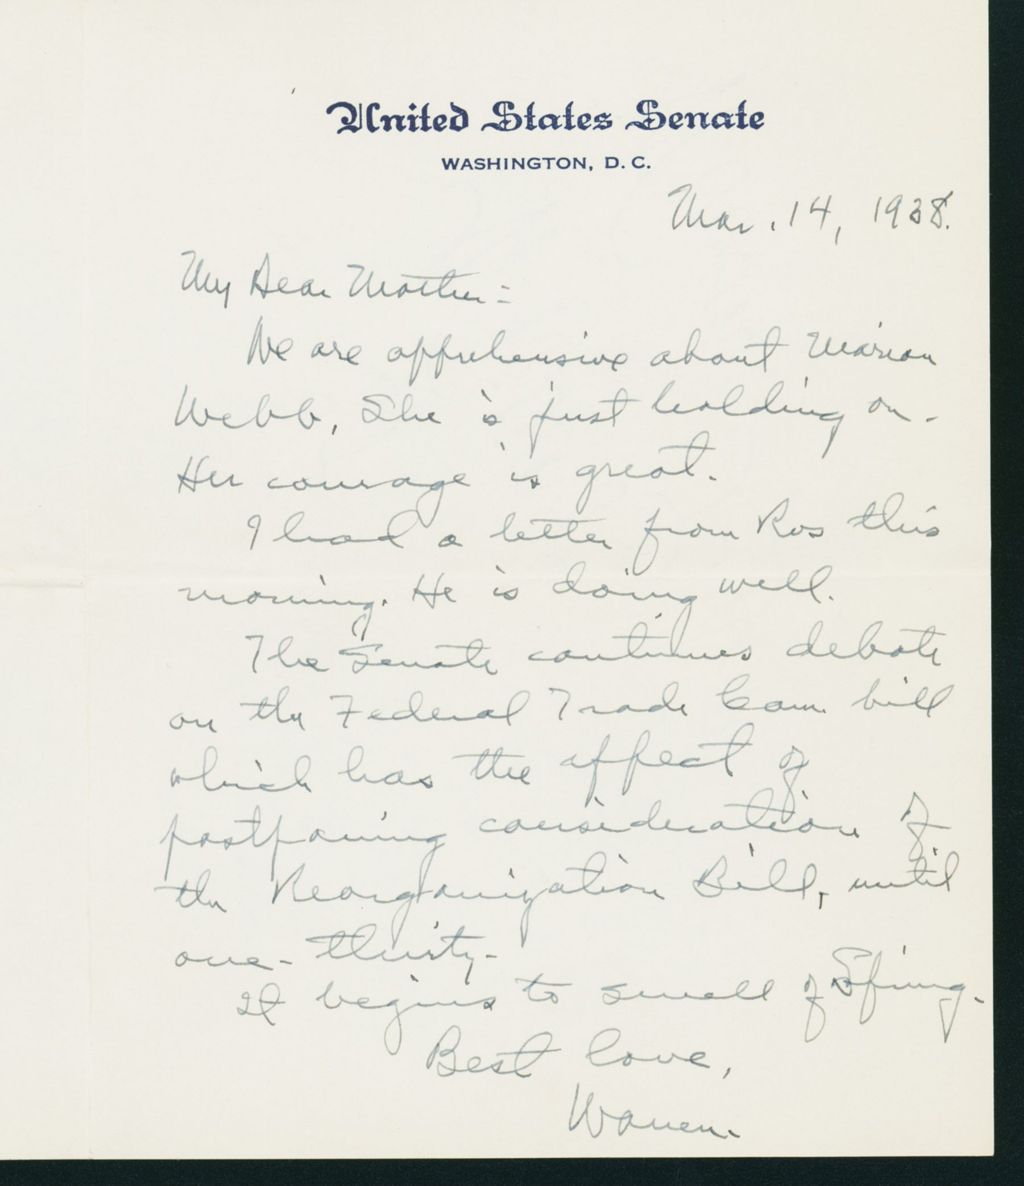 United States Senate
WASHINGTON, D. C.
Mar. 14, 1938.
My Dear Mother:-
We are apprehensive about Marian
Webb, She is just holding on.
Her courage is great.
I had a letter from Ros this
morning. He is doing well.
The Senate continues debate
on the Federal Trade Com. bill
which has the affect of
postponing consideration of
the Reorganization Bill, until
one-thirty.
It begins to smell of Spring.
Best love,
Warren.